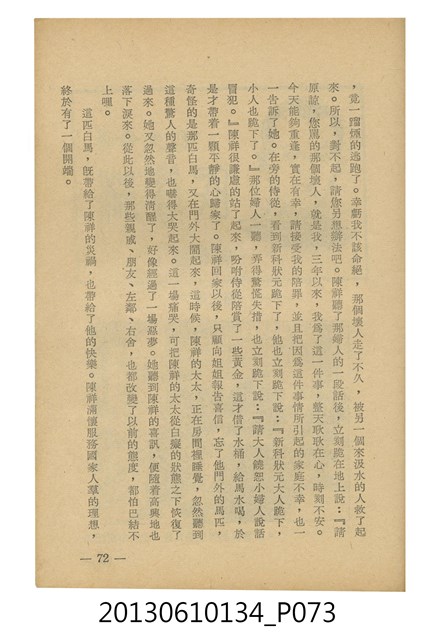 ，竟一溜煙的逃跑了。幸虧我不該命絕，那個壞人走了不久，被另一個來汲水的人救了起
來。所以，對不起，請您另想辦法吧。陳祥聽了那婦人的一段話後，立刻跪在地上說：『請
原諒，您罵的那個壞人，就是我，三年以來，我為了這一件事，整天耿耿在心，時刻不安。
今天能夠重逢，實在有幸，請接受我的陪罪，並且把因為這件事情所引起的家庭不幸，也一
一告訴了她。在旁的侍從，看到新科狀元跪下了，他也立刻跪下說：『新科狀元大人跪下，
小人也跪下了。』那位婦人一聽，弄得驚慌失措，也立刻跪下說：『請大人饒恕小婦人說話
冒犯。』陳祥很謙虛的站了起來，吩咐侍從陪賞了一些黃金，這才借了水桶，給馬水喝，於
是才帶着一顆平靜的心歸家了。陳祥回家以後，只顧向姐姐報告喜信，忘了他門外的馬匹，
奇怪的是那匹白馬，又在門外大鬧起來，這時候，陳祥的太太，正在房間裡睡覺，忽然聽到
這種驚人的聲音，也嚇得大哭起來。這一場痛哭，可把陳祥的太太從白癡的狀態之下恢復了
過來。她又忽然地變得清醒了，好像經過了一場惡夢。她聽到陳祥的喜訊，便隨着高興地也
落下淚來。從此以後，那些親戚、朋友、左鄰、右舍，也都改變了以前的態度，都怕巴結不
上哩。
這匹白馬，既帶給了陳祥的災禍，也帶給了他的快樂。陳祥滿懷服務國家人羣的理想，
終於有了一個開端。
— 72 —
20130610134_P073